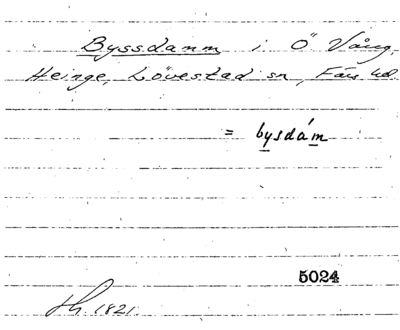 Byssdamm i Ö Vång,
Heinge, Lövestad sn, Färs hd
= bysdám
5024
Th. 1821.